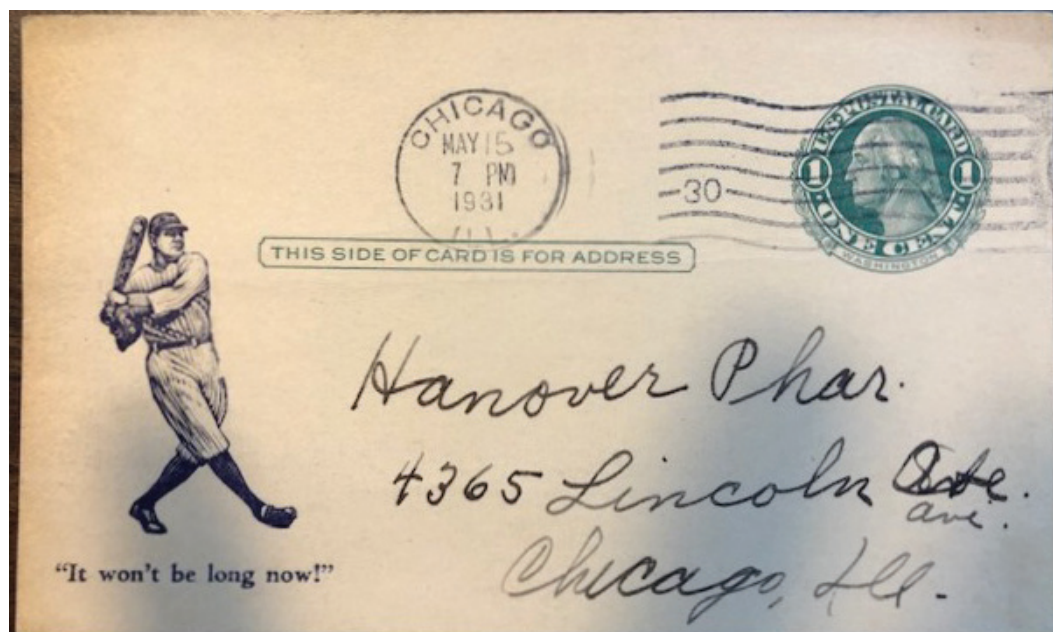 CHICAGO
MAY 15
7 PM
1931
ILL.
30
U.S. POSTAL CARD
1 1
ONE CENT
WASHINGTON
THIS SIDE OF CARD IS FOR ADDRESS
Hanover Phar.
4365 Lincoln
ave.
Chicago, Ill.
"It won't be long now!"